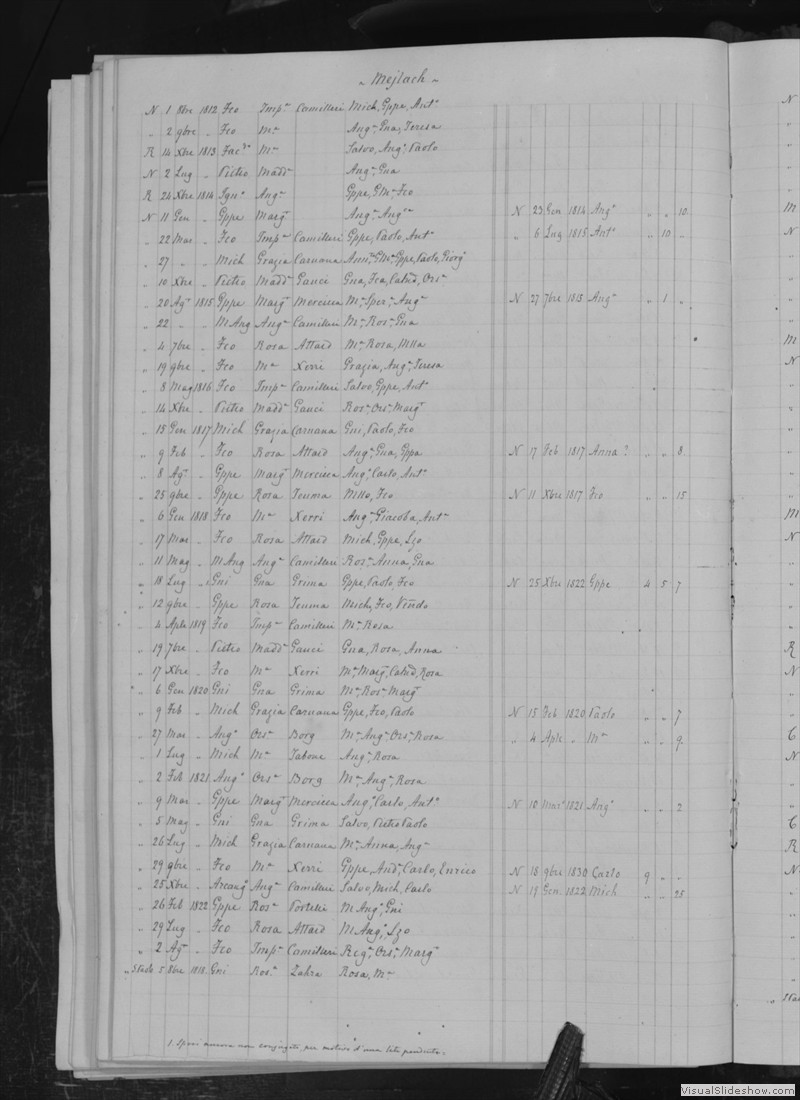 " Mejlach "
N 1 8bre 1812 Fco Impa Camilleri Mich, Gppe, Anto
" 2 9bre " Fco Ma Anga, Gna, Teresa
R 14 Xbre 1813 Ma Salvo, Ango, Paolo
N 2 Lug " Pietro Madda Anga, Gna
R 26 Xbre 1814 Igno Anga Gppe, GMa, Fco
N 11 Gen " Gppe Marga Anga, Anga N 23 Gen 1814 Ango " " 10
" 22 Mar " Fco Impa Camilleri Gppe, Paolo, Anto " 6 Lug 1815 Anto " 10 "
" 27 " " Mich Grazia Caruana Anna, GMa, Gppe, Paolo, Giorgo
" 10 Xbre " Pietro Madda Gauci Gna, Fca, Calcd, Orsa
" 20 Ago 1815 Gppe Marga Mercieca Ma, Spera, Anga N 27 7bre 1815 Anga " 1 "
" 22 " " M Ang Anga Camilleri Ma, Rosa, Gna
" 4 7bre " Fco Rosa Attard Ma, Rosa, Mlla
" 19 9bre " Fco Ma Xerri Grazia, Anga, Teresa
" 8 Mag 1816 Fco Impa Camilleri Salvo, Gppe, Anto
" 14 Xbre " Pietro Madda Gauci Rosa, Orsa, Marga
" 15 Gen 1817 Mich Grazia Caruana Gni, Paolo, Fco
" 9 Feb " Fco Rosa Attard Anga, Gna, Gppa N 17 Feb 1817 Anna ? " " 8
" 8 Ago " Gppe Marga Mercieca Ango, Carlo, Anto
" 25 9bre " Gppe Rosa Teuma Mllo, Fco N 11 Xbre 1817 Fco " " 15
" 6 Gen 1818 Fco Ma Xerri Anga, Giacoba, Anta
" 17 Mar " Fco Rosa Attard Mich, Gppe, Lzo
" 11 Mag " M Ang Anga Camilleri Rosa, Anna, Gna
" 18 Lug " Gni Gna Grima Gppe, Paolo, Fco N 25 Xbre 1822 Gppe 4 5 7
" 12 9bre " Gppe Rosa Teuma Mich, Fco, Vindo
" 4 Aple 1819 Fco Impa Camilleri Ma, Rosa
" 19 7bre " Pietro Madda Gauci Gna, Rosa, Anna
" 17 Xbre " Fco Ma Xerri Ma, Marga, Calcd, Rosa
" 6 Gen 1820 Gni Gna Grima Ma, Rosa, Marga
" 9 Feb " Mich Grazia Caruana Gppe, Fco, Paolo N 15 Feb 1820 Paolo " " 7
" 27 Mar " Ango Orsa Borg Ma, Anga, Orsa, Rosa " 4 Aple " Ma " " 9
" 1 Lug " Mich Ma Tabone Anga, Rosa
" 2 Feb 1821 Ango Orsa Borg Ma, Anga, Rosa
" 9 Mar " Gppe Marga Mercieca Ango, Carlo, Anto N 10 Marzo 1821 Ango " " 2
" 5 Mag " Gni Gna Grima Salvo, Pietro Paolo
" 26 Lug " Mich Grazia Caruana Ma, Anna, Anga
" 29 9bre " Fco Ma Xerri Gppe, Anda, Carlo, Enrico N 18 9bre 1830 Carlo 9 " "
" 25 Xbre " Arcango Anga Camilleri Salvo, Mich, Carlo N 19 Gen 1822 Mich " " 25
" 26 Feb 1822 Gppe Rosa Portelli M Ango, Gni
" 29 Lug " Fco Rosa Attard M Ango, Lzo
" 2 Ago " Fco Impa Camilleri Rega, Orsa, Marga
" 5 8bre 1818 Gni Rosa Zahra Rosa, Ma
1. Sposi ancora non conjugati, per motivo d'una lite pendente.
VisualSlideshow.com